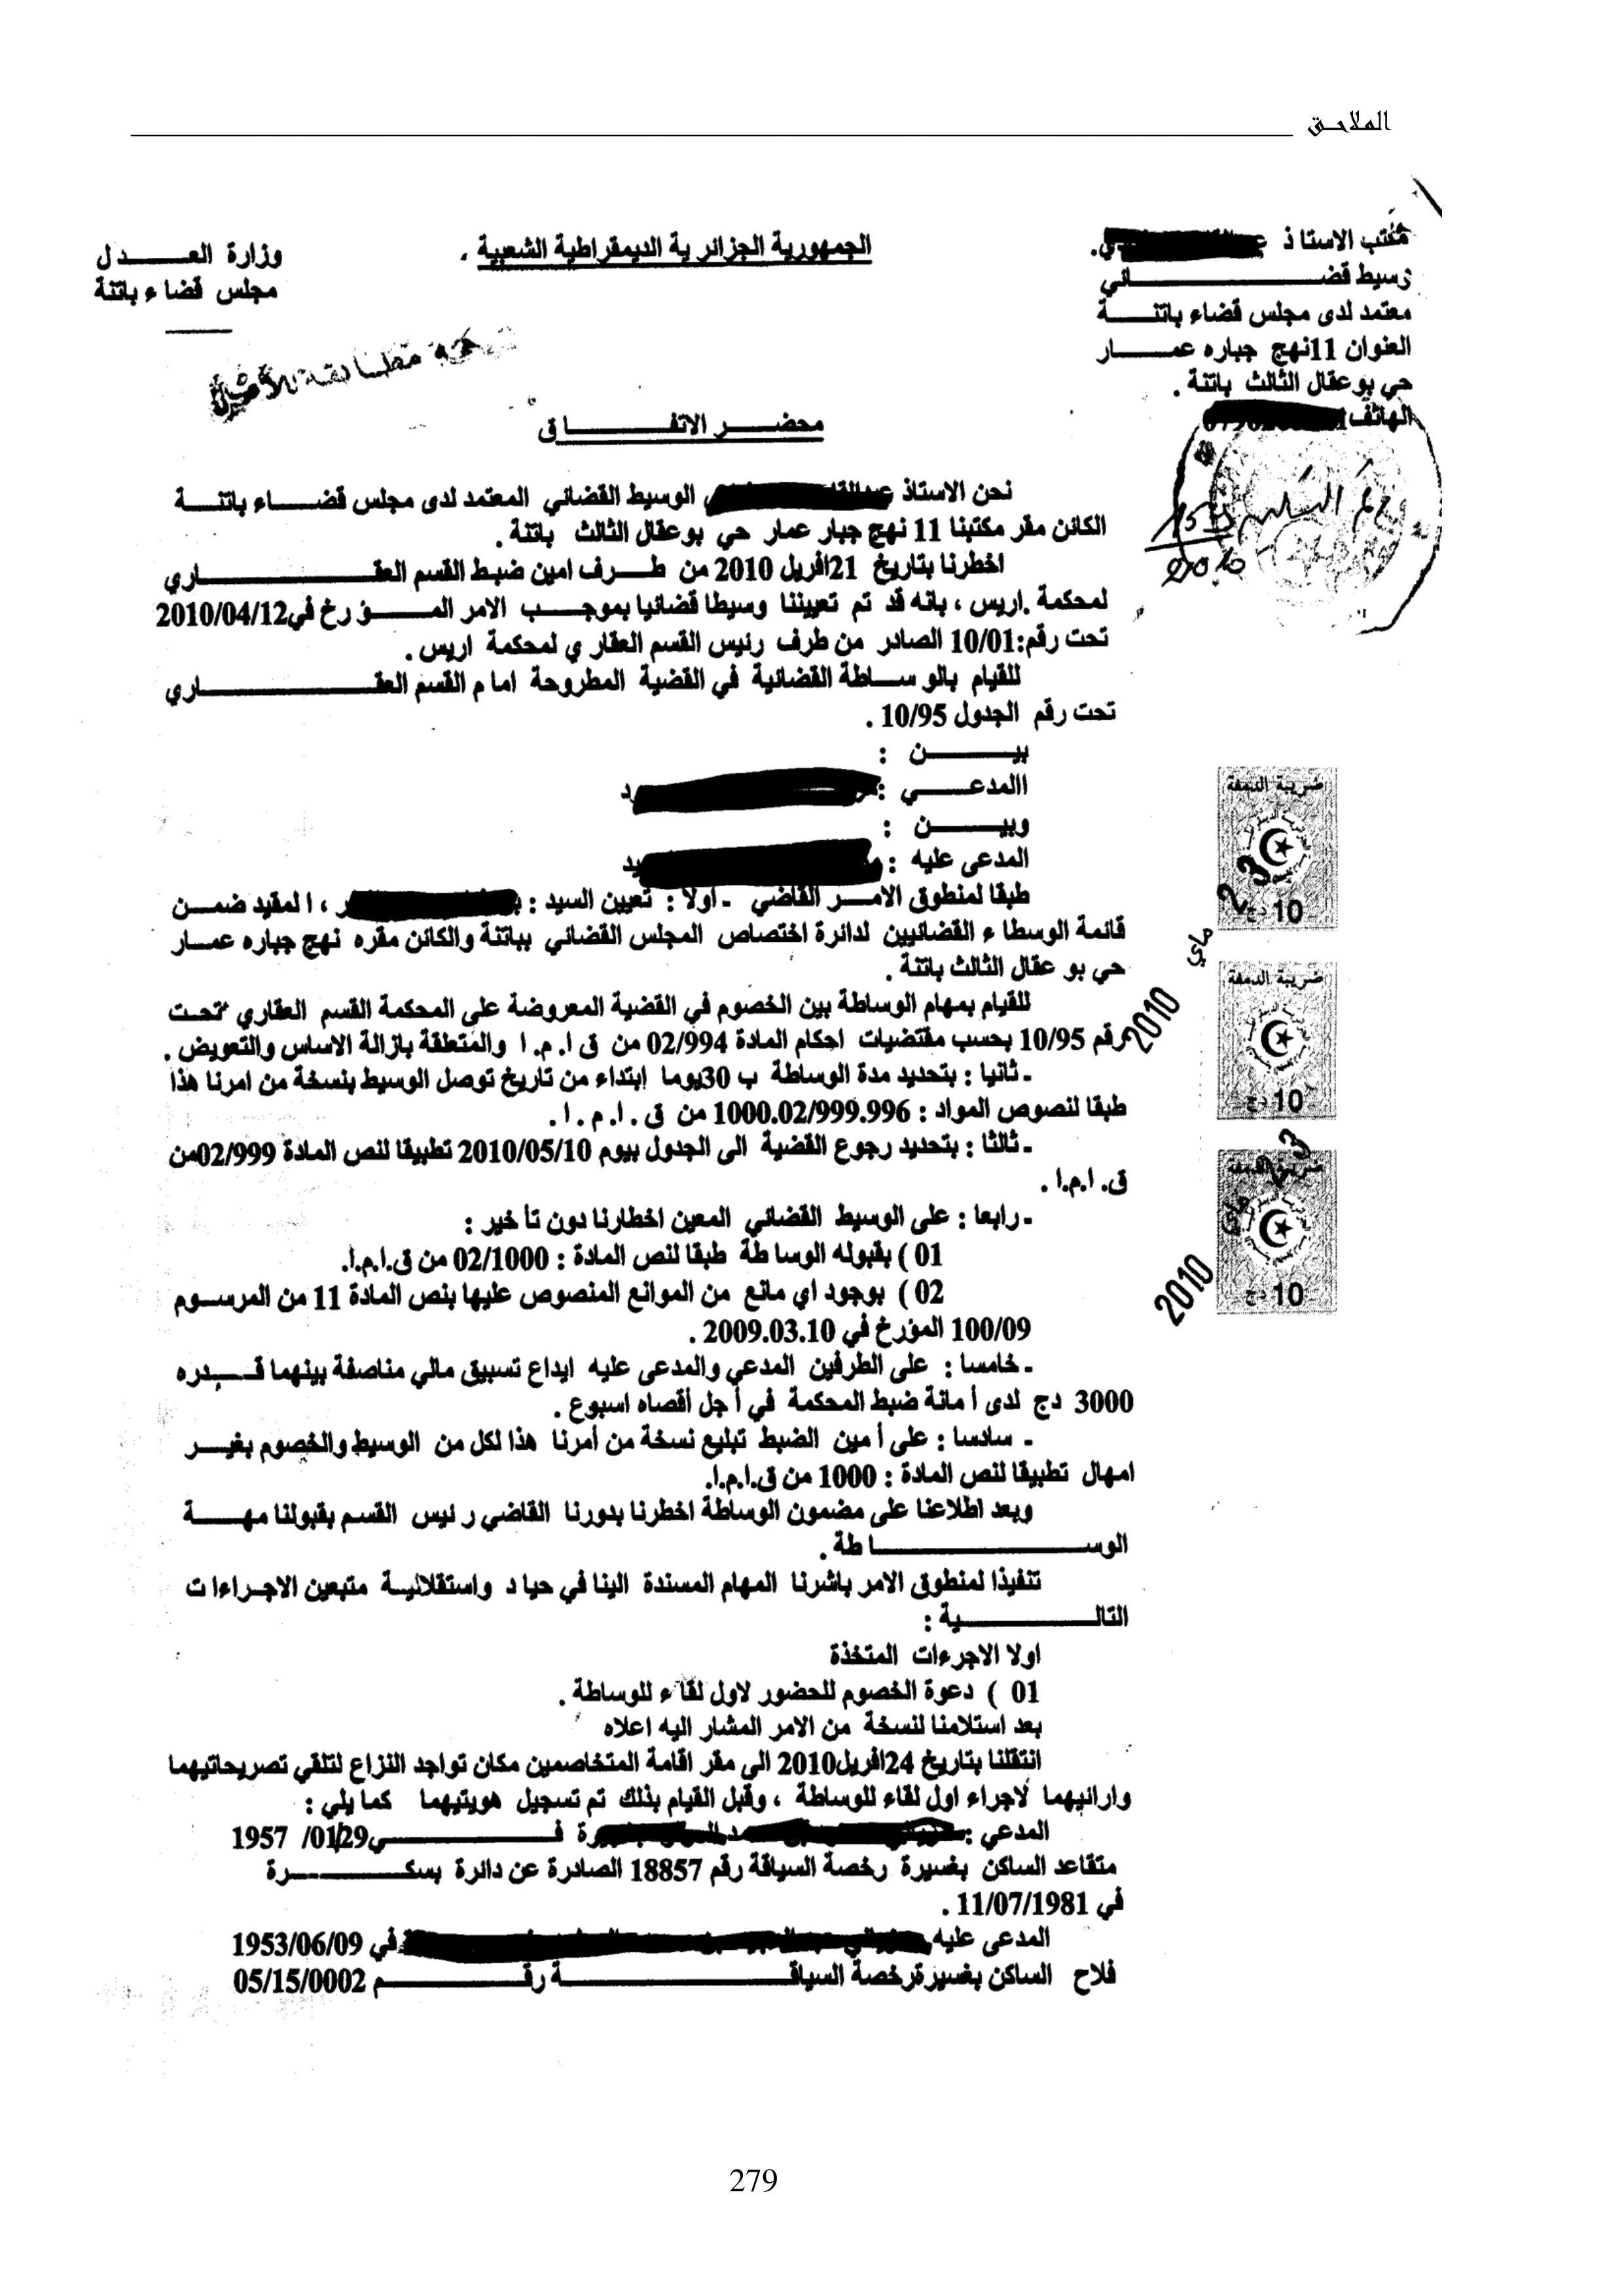 الملاحق
مكتب الاستاذ
وسيط قضائي
معتمد لدى مجلس قضاء باتنة
العنوان 11نهج جباره عمار
حي بوعقال الثالث باتنة .
الهاتف
الجمهورية الجزائرية الديمقراطية الشعبية .
وزارة العدل
مجلس قضاء باتنة
محضر الاتفاق
نحن الاستاذ الوسيط القضائي المعتمد لدى مجلس قضاء باتنة
الكائن مقر مكتبنا 11 نهج جبار عمار حي بوعقال الثالث باتنة .
اخطرنا بتاريخ 21افريل 2010 من طرف امين ضبط القسم العقاري
لمحكمة .اريس ، بانه قد تم تعييننا وسيطا قضائيا بموجب الامر المؤرخ في2010/04/12
تحت رقم:10/01 الصادر من طرف رئيس القسم العقاري لمحكمة اريس .
للقيام بالوساطة القضائية في القضية المطروحة امام القسم العقاري
تحت رقم الجدول 10/95 .
بين :
االمدعي :
وبين :
المدعى عليه :
طبقا لمنطوق الامر القاضي - اولا : تعيين السيد : ، المقيد ضمن
قائمة الوسطاء القضائيين لدائرة اختصاص المجلس القضائي بباتنة والكائن مقره نهج جباره عمار
حي بو عقال الثالث باتنة .
للقيام بمهام الوساطة بين الخصوم في القضية المعروضة على المحكمة القسم العقاري تحت
رقم 10/95 بحسب مقتضيات احكام المادة 02/994 من ق ا. م. ا والمتعلقة بازالة الاساس والتعويض .
- ثانيا : بتحديد مدة الوساطة ب 30يوما إبتداء من تاريخ توصل الوسيط بنسخة من امرنا هذا
طبقا لنصوص المواد : 1000.02/999.996 من ق . ا. م . ا .
- ثالثا : بتحديد رجوع القضية الى الجدول بيوم 2010/05/10 تطبيقا لنص المادة 02/999من
ق. ا.م.ا .
- رابعا : على الوسيط القضائي المعين اخطارنا دون تأخير :
01 ) بقبوله الوساطة طبقا لنص المادة : 02/1000 من ق.ا.م.ا.
02 ) بوجود اي مانع من الموانع المنصوص عليها بنص المادة 11 من المرسوم
100/09 المؤرخ في 2009.03.10 .
- خامسا : على الطرفين المدعي والمدعى عليه ايداع تسبيق مالي مناصفة بينهما قدره
3000 دج لدى أمانة ضبط المحكمة في أجل أقصاه اسبوع .
- سادسا : على أمين الضبط تبليغ نسخة من أمرنا هذا لكل من الوسيط والخصوم بغير
امهال تطبيقا لنص المادة : 1000 من ق.ا.م.ا.
وبعد اطلاعنا على مضمون الوساطة اخطرنا بدورنا القاضي رئيس القسم بقبولنا مهة
الوساطة .
تنفيذا لمنطوق الامر باشرنا المهام المسندة الينا في حياد واستقلالية متبعين الاجراءات
التالية :
اولا الاجرءات المتخذة
01 ) دعوة الخصوم للحضور لاول لقاء للوساطة .
بعد استلامنا لنسخة من الامر المشار اليه اعلاه
انتقلنا بتاريخ 24افريل2010 الى مقر اقامة المتخاصمين مكان تواجد النزاع لتلقي تصريحاتيهما
وارائيهما لاجراء اول لقاء للوساطة ، وقبل القيام بذلك تم تسجيل هويتيهما كما يلي :
المدعي : في01/29/ 1957
متقاعد الساكن بغسيرة رخصة السياقة رقم 18857 الصادرة عن دائرة بسكرة
في 11/07/1981 .
المدعى عليه في 1953/06/09
فلاح الساكن بغسيرةرخصة السياقة رقم 05/15/0002
ضريبة الدمغة
10 دج
23
ماي
2010
ضريبة الدمغة
10 دج
ضريبة الدمغة
10 دج
23
ماي
2010
279